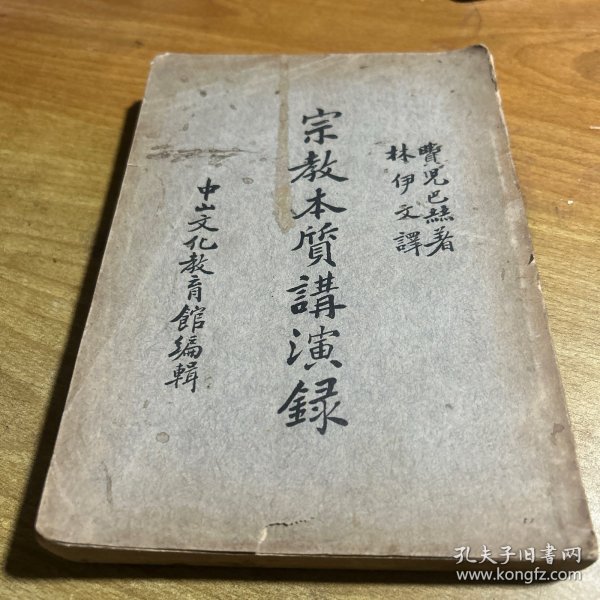 費児巴赫著
林伊文譯
宗教本質講演録
中山文化教育館編輯
孔夫子旧書网
www.kongfz.com